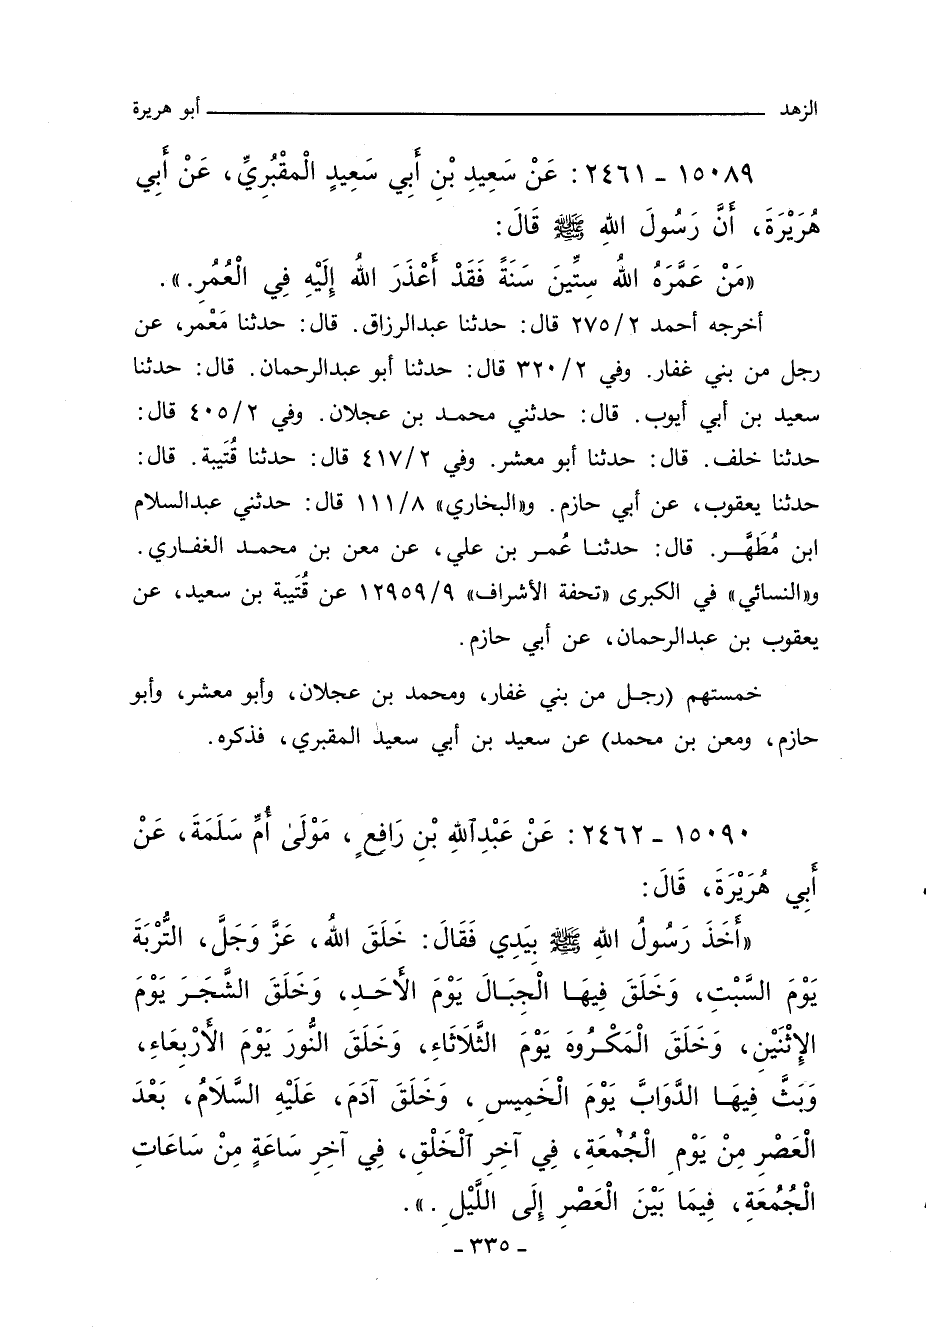 الزهد أبو هريرة
١٥٠٨٩ - ٢٤٦١ : عَنْ سَعِيدِ بْنِ أَبي سَعِيدٍ الْمقْبُرِيِّ، عَنْ أَبِي
هُرَيْرَةَ، أَنَّ رَسُولَ اللهِ ﷺ قَالَ:
«مَنْ عَمَّرَهُ اللهُ سِتِّينَ سَنَةً فَقَدْ أَعْذَرَ اللهُ إِلَيْهِ فِي الْعُمُرِ.».
أخرجه أحمد ٢/ ٢٧٥ قال: حدثنا عبدالرزاق. قال: حدثنا مَعْمر، عن
رجل من بني غفار. وفي ٢/ ٣٢٠ قال: حدثنا أبو عبدالرحمان. قال: حدثنا
سعيد بن أبي أيوب. قال: حدثني محمد بن عجلان. وفي ٢/ ٤٠٥ قال:
حدثنا خلف. قال: حدثنا أبو معشر. وفي ٢/ ٤١٧ قال: حدثنا قُتَيبة. قال:
حدثنا يعقوب، عن أبي حازم. و«البخاري» ٨/ ١١١ قال: حدثني عبدالسلام
ابن مُطَهَّر. قال: حدثنا عُمر بن علي، عن معن بن محمد الغفاري.
و«النسائي» في الكبرى «تحفة الأشراف» ٩/ ١٢٩٥٩ عن قُتَيبة بن سعيد، عن
يعقوب بن عبدالرحمان، عن أبي حازم.
خمستهم (رجل من بني غفار، ومحمد بن عجلان، وأبو معشر، وأبو
حازم، ومعن بن محمد) عن سعيد بن أبي سعيد المقبري، فذكره.
١٥٠٩٠ - ٢٤٦٢ : عَنْ عَبْدِاللهِ بْنِ رَافِعٍ، مَوْلَىٰ أُمِّ سَلَمَةَ، عَنْ
أَبِي هُرَيْرَةَ، قَالَ:
«أَخَذَ رَسُولُ اللهِ ﷺ بِيَدِي فَقَالَ: خَلَقَ اللهُ، عَزَّ وَجَلَّ، التُّرْبَةَ
يَوْمَ السَّبْتِ، وَخَلَقَ فِيهَا الْجِبَالَ يَوْمَ الأَحَدِ، وَخَلَقَ الشَّجَرَ يَوْمَ
الإِثْنَيْنِ، وَخَلَقَ الْمَكْرُوهَ يَوْمَ الثَّلَاثَاءِ، وَخَلَقَ النُّورَ يَوْمَ الأَرْبِعَاءِ،
وَبَثَّ فِيهَا الدَّوَابَّ يَوْمَ الْخَمِيسِ، وَخَلَقَ آدَمَ، عَلَيْهِ السَّلَامُ، بَعْدَ
الْعَصْرِ مِنْ يَوْمِ الْجُمُعَةِ، فِي آخِرِ الْخَلْقِ، فِي آخِرِ سَاعَةٍ مِنْ سَاعَاتِ
الْجُمُعَةِ، فِيمَا بَيْنَ الْعَصْرِ إِلَى اللَّيْلِ.».
- ٣٣٥ -